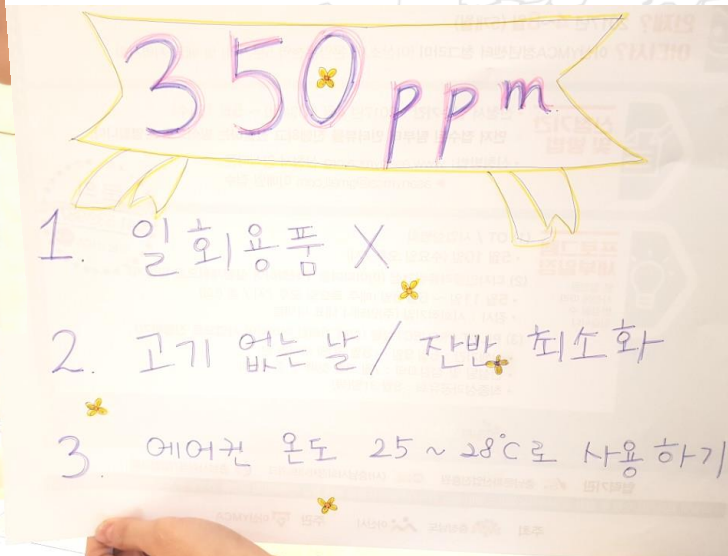 350ppm
1. 일회용품 X
2. 고기 없는 날 / 잔반 최소화
3. 에어컨 온도 25~28℃로 사용하기